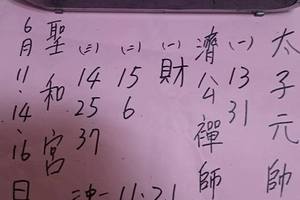 太子元帥
(一) 13 31
濟公禪師
(一) 財
(二) 15 6
(三) 14 25 37
聖和宮
6月11.14.16日